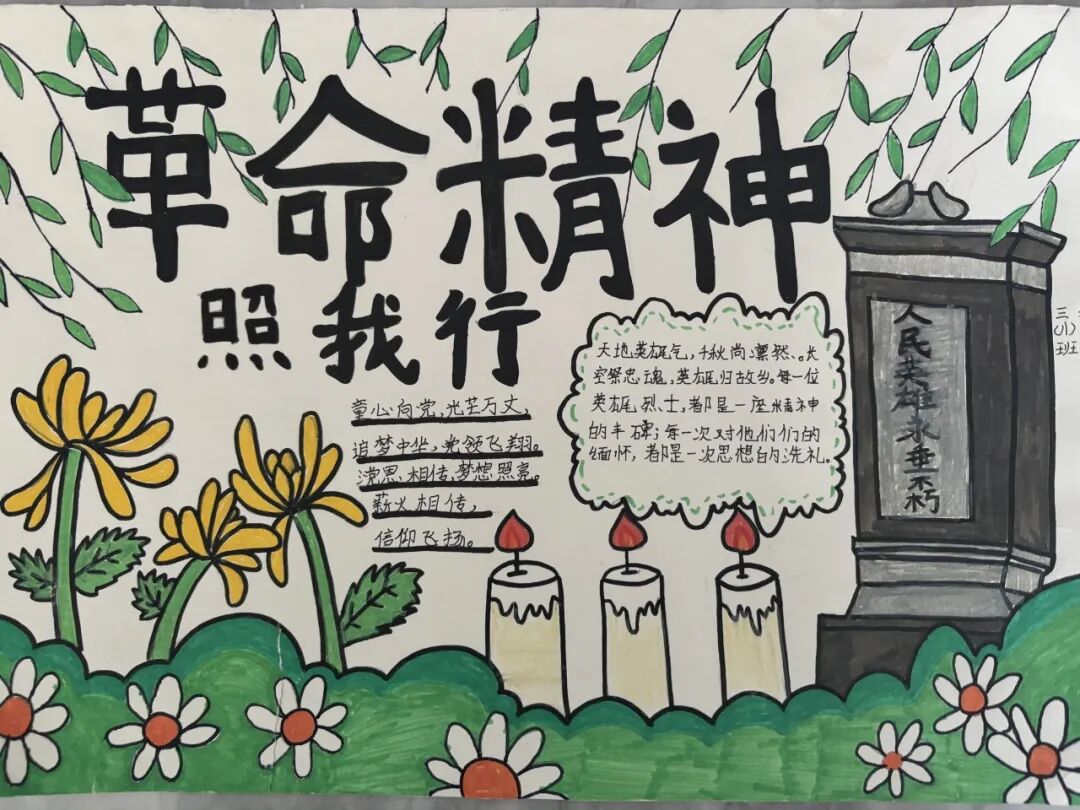 革命精神
照我行
童心向党,光芒万丈,
追梦中华,党领飞翔。
思相传,梦想照亮。
薪火相传,
信仰飞扬。
天地英雄气,千秋尚凛然、。长
空祭忠魂,英雄归故乡。每一位
英雄烈士,都是一座精神
的丰碑;每一次对他们们的
缅怀,都是一次思想的洗礼。
人民英雄永垂不朽
三
班